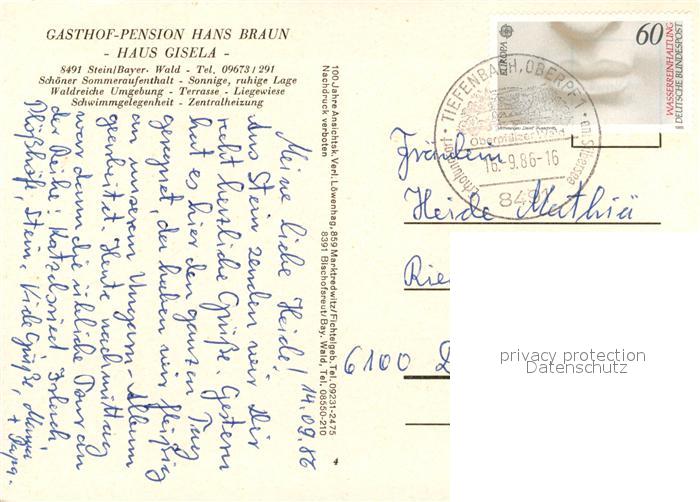 GASTHOF-PENSION HANS BRAUN
- HAUS GISELA -
8491 Stein/Bayer. Wald - Tel. 09673 / 291
Schöner Sommeraufenthalt - Sonnige, ruhige Lage
Waldreiche Umgebung - Terrasse - Liegewiese
Schwimmgelegenheit - Zentralheizung
14.09.86
Meine liebe Heide!
Aus Stein senden wir Dir
recht herzliche Grüße. Gestern
hat es hier den ganzen Tag
geregnet, da haben wir fleißig
an unserem Ungarn-Album
gearbeitet. Heute nachmittag
war dann die übliche Tour an
der Reihe: Katzelsried
Stein. Viele Grüße, Mama
+ Papa.
100 Jahre Ansichtsk. Verl. Löwenhag, 859 Marktredwitz/Fichtelgeb. Tel. 09231-2475
Nachdruck verboten 8391 Bischofsreut/Bay. Wald, Tel. 08550-210
4
EUROPA
60
WASSERREINHALTUNG
DEUTSCHE BUNDESPOST
TIEFENBACH, OBERPF 1
Erholungsort
am Silbersee
Oberpfälzer Wald
16.-9.86-16
8491
Fräulein
Heide Mathiä
Rie
6100 D
privacy protection
Datenschutz